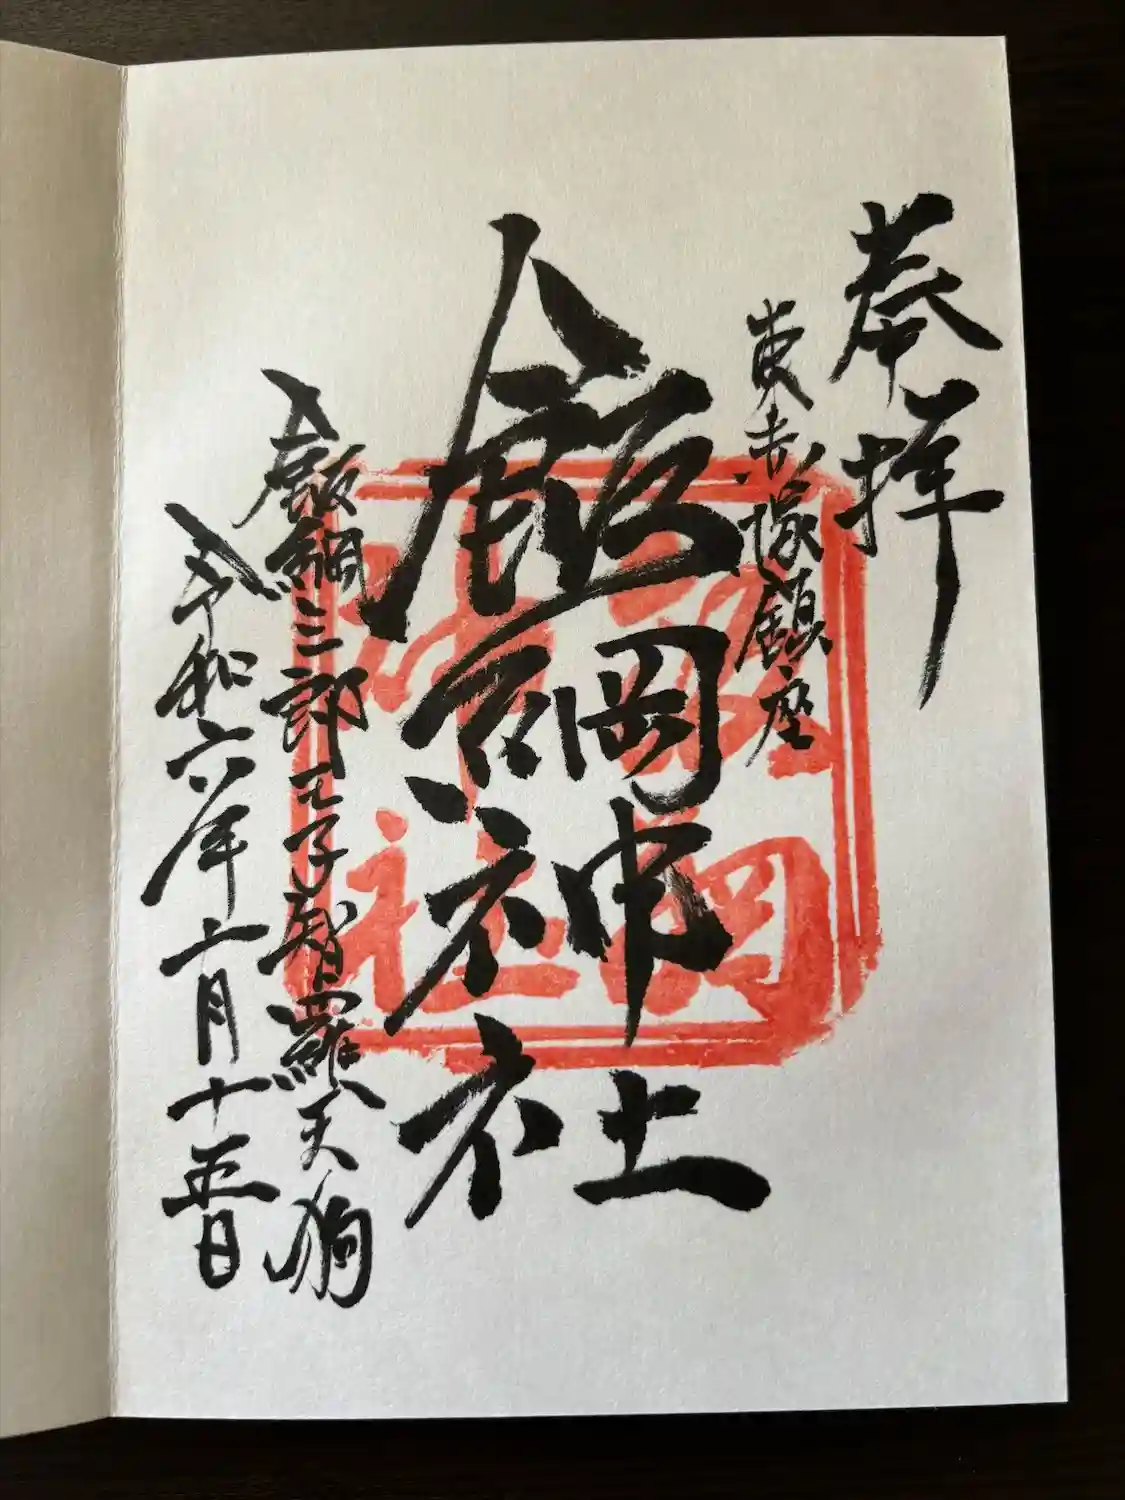 奉拝
東赤塚鎮座
飯綱神社
飯綱三郎王子智羅天狗
令和六年二月十五日
飯綱
神社